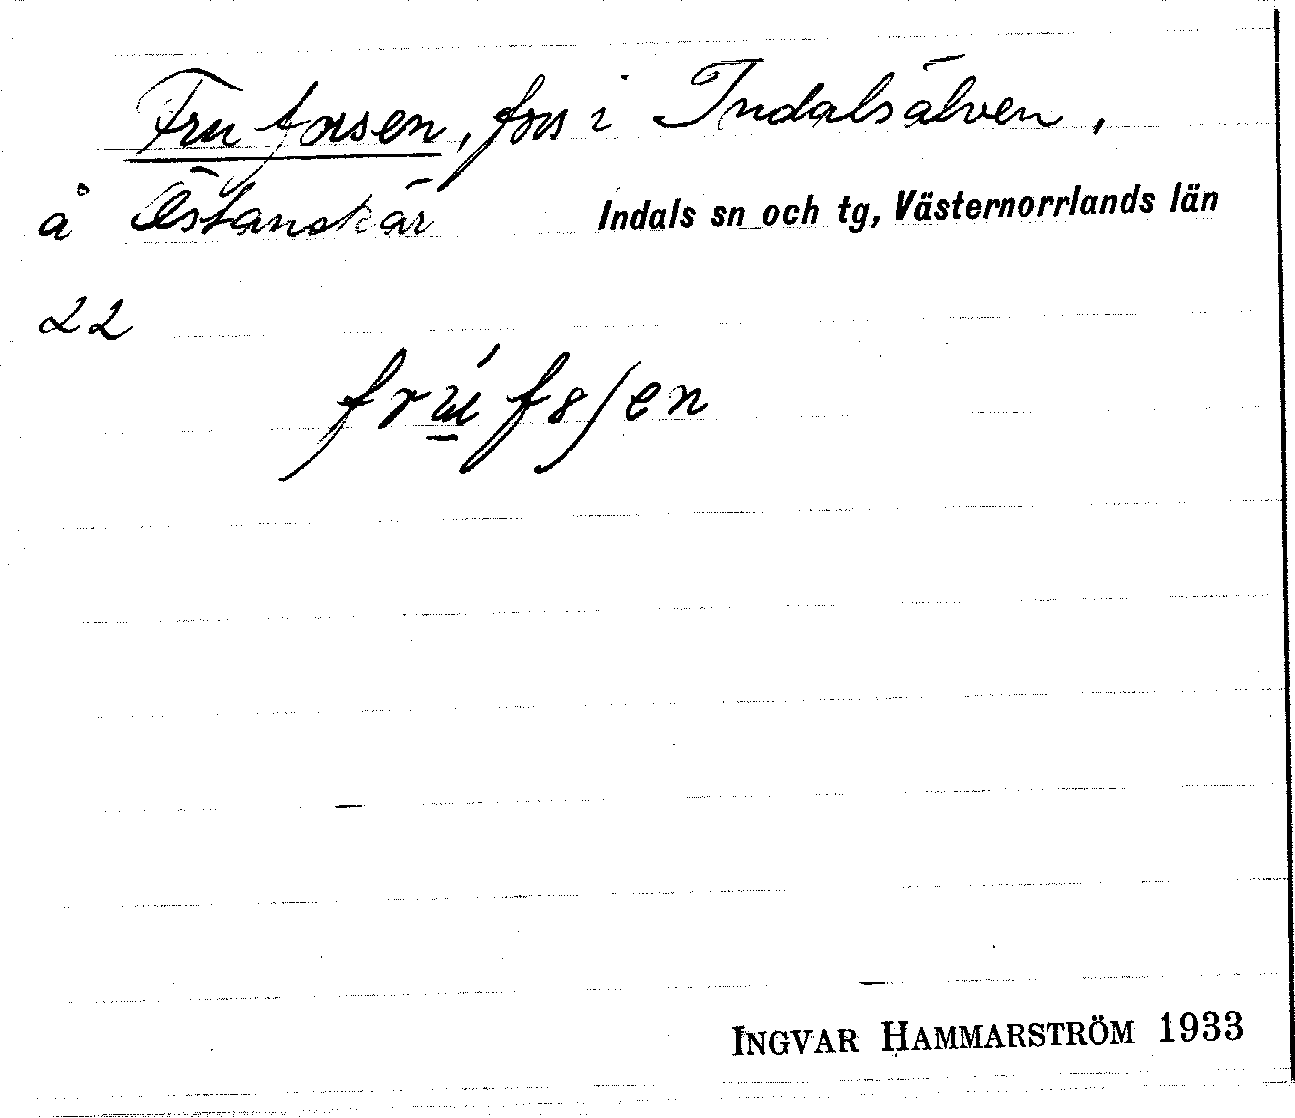 Fruforsen, fors i Indalsälven,
å Östanskär Indals sn och tg, Västernorrlands län
22
INGVAR HAMMARSTRÖM 1933